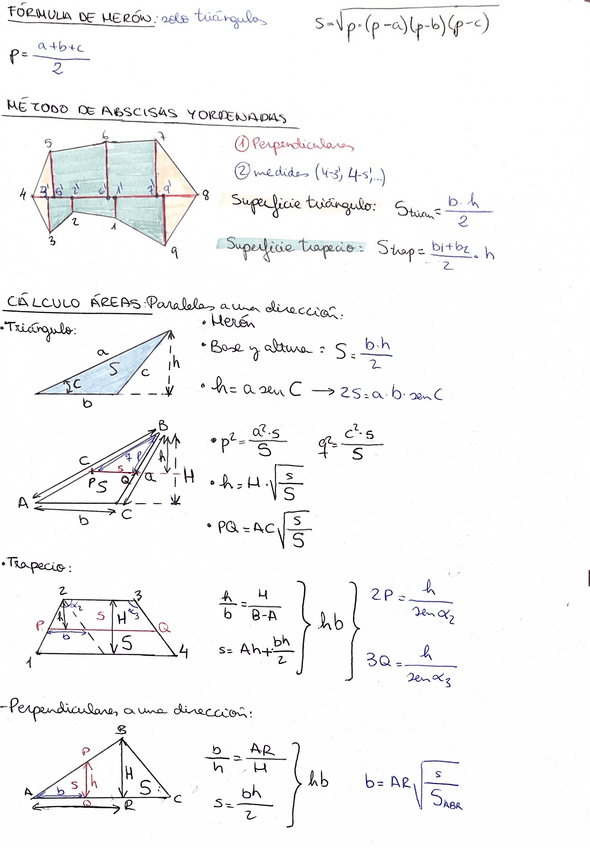 FÓRMULA DE HERÓN: solo triángulos
S=√p·(p-a)(p-b)(p-c)
p= a+b+c / 2
MÉTODO DE ABSCISAS Y ORDENADAS
5 6 7
4 3' 5' 2' 6' 1' 7' 9' 8
3 2 1 9
① Perpendiculares
② medidas (4-3', 4-5',...)
Superficie triángulo: S trian = b·h / 2
Superficie trapecio: S trap = b1+b2 / 2 · h
CÁLCULO ÁREAS: Paralelas a una dirección:
•Triángulo:
a S c h
C
b
• Herón
• Base y altura: S= b·h / 2
• h= a sen C → 2S=a·b·sen C
B
C q p h H
P s Q a
S
A C
b
• p²= a²·s / S q²= c²·s / S
• h= H·√ s / S
• PQ = AC √ s / S
•Trapecio:
2 α2 α3 3
h s H
P b Q
S
1 4
h / b = H / B-A
s= Ah+ bh / 2
hb
2P = h / sen α2
3Q = h / sen α3
-Perpendiculares a una dirección:
B
P H
b s h S
A Q R C
b / h = AR / H
s= bh / 2
hb
b= AR √ s / S ABR